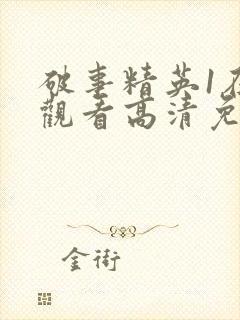 破事精英1在
觀看高清免
金街